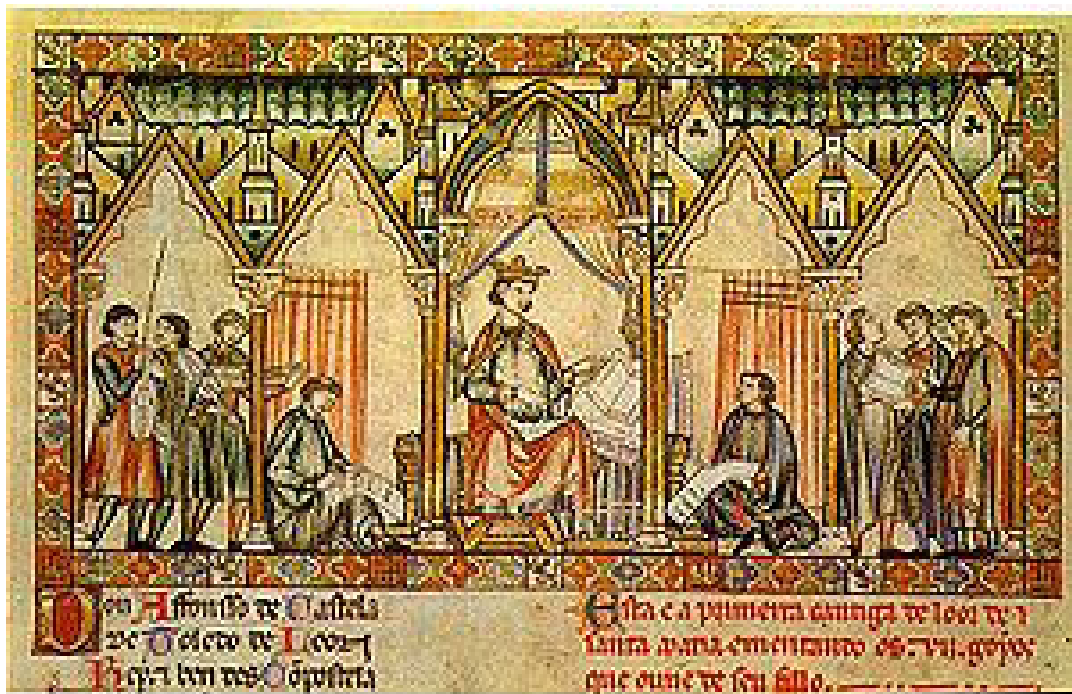 Don Affonsso de Castela
de Toledo de Leon
Rey ben des Conpostela
Esta e a primeira cantiga de loor de
santa maria ementando os .vii. goyos
que ouue de seu fillo.